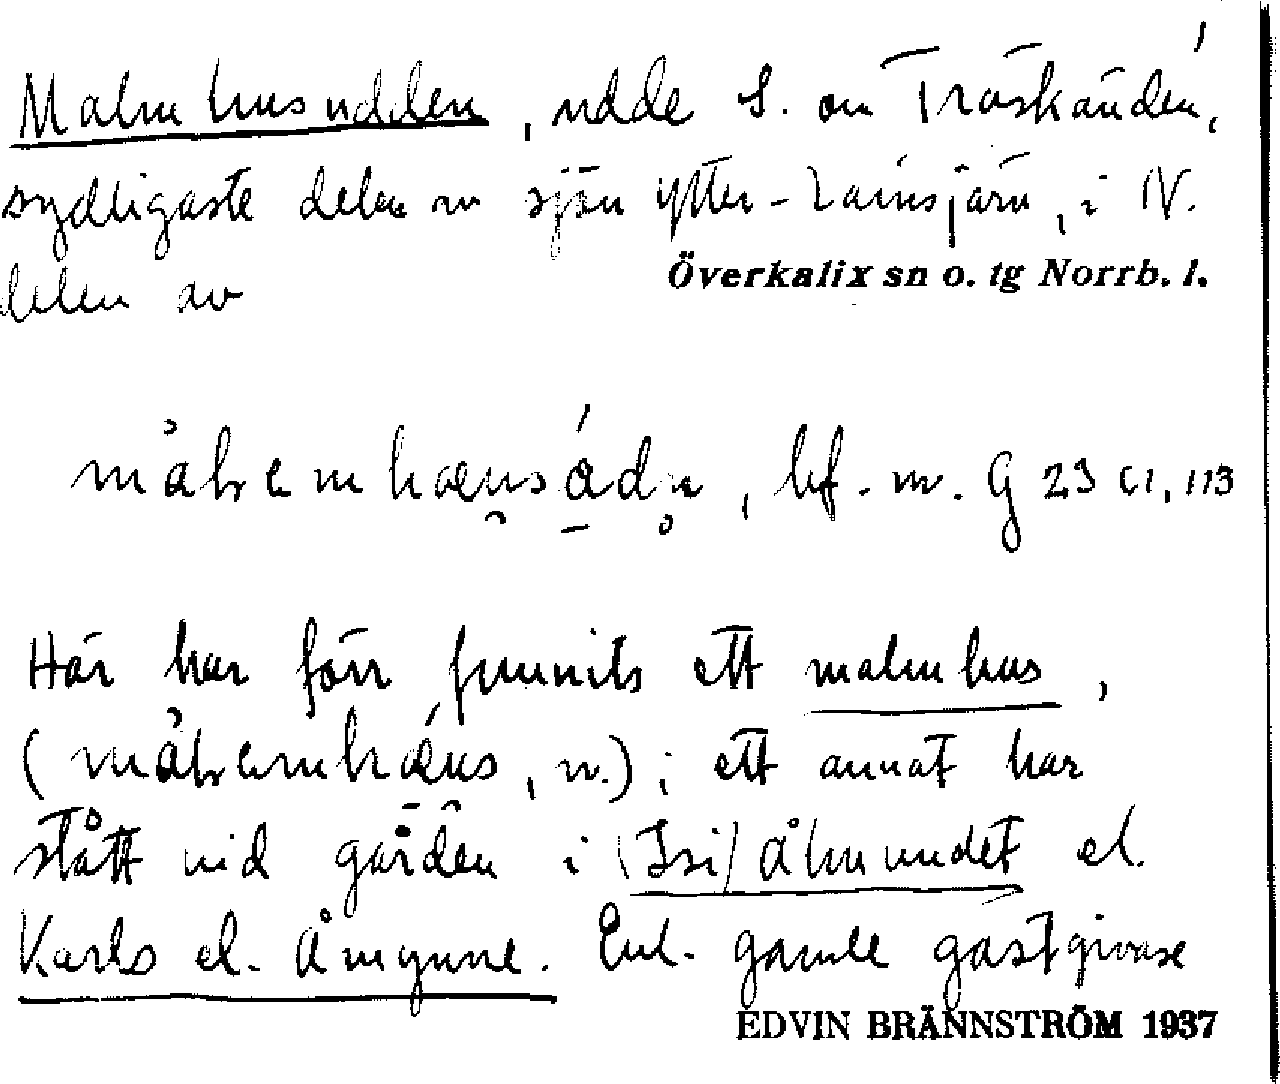 Malmhusudden, udde S. om Träskänden,
sydligaste delen av sjön Ytter-Lainsjärv, i N.
delen av Överkalix sn o. tg Norrb. l.
bf. m. G 23 c1, 113
Här har förr funnits ett malmhus,
n.); ett annat har
stått vid gården i (Isi) Ålmundet el.
Karls el. Åmynne. Enl. gamle gästgivare
EDVIN BRÄNNSTRÖM 1937